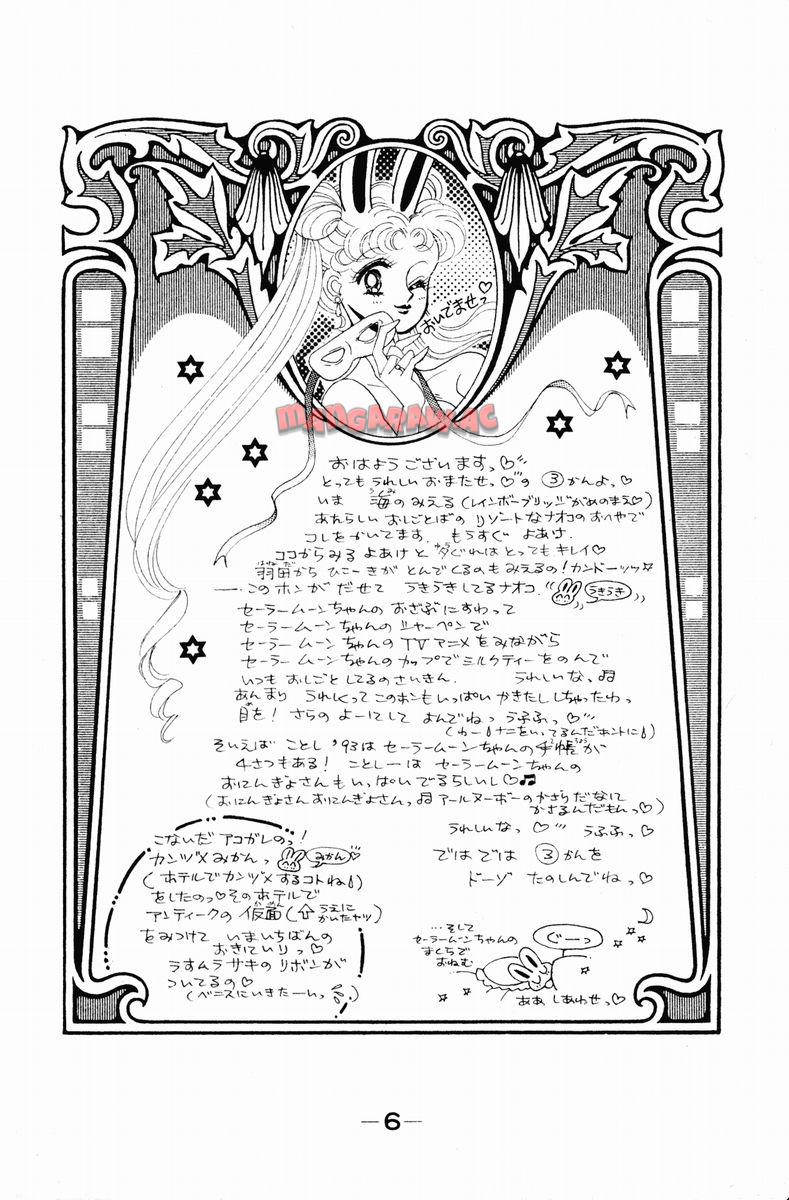 おいでませっ♡
MANGARAW.AC
おはようございますっ♡
とってもうれしい おまたせっ♡の ③かんよっ♡
いま 海のみえる(レインボーブリッジがめのまえ♡)
あたらしい おしごとばの リゾートなナオコのおへやで
コレをかいてます。もうすぐ よあけ。
ココからみる よあけと 夕ぐれは とってもキレイ♡
羽田から ひこーきが とんでくるのもみえるの!カンドーッッ☆
—このホンが だせて うきうきしてるナオコ。
うきうき
セーラームーンちゃんの おざぶにすわって
セーラームーンちゃんの シャーペンで
セーラームーンちゃんの TVアニメをみながら
セーラームーンちゃんの カップでミルクティーをのんで
いつも おしごとしてるのさいきん。 うれしいなっ♫
あんまり うれしくって このホンも いっぱい かきたししちゃったわっ
目を! さらの よーにして よんでねっ うふふっ♡
(わー!ナニをいってるんだホントに!)
そいえば ことし '93は セーラームーンちゃんの手帳が
4さつもある! ことしーは セーラームーンちゃんの
おにんぎょさんもいっぱいでるらしいし♡♫
(おにんぎょさん おにんぎょさんっ♫ アールヌーボーの かざりだなに
かざるんだもんっ♡)
うれしいなっ♡ うふふっ♡
では では ③かんを
ドーゾ たのしんでねっ♡
こないだ アコガレのっ!
カンヅメみかんっ
みかん
(ホテルでカンヅメするコトね!)
をしたのっ♡そのホテルで
アンティークの 仮面(⇧うえにかいたヤツ)
をみつけて いまいちばんの
おきにいりっ♡
うすムラサキの リボンが
ついてるの♡
(ベニスにいきたーいっ)
…そして
セーラームーンちゃんの
まくらで
おねむ
ぐーっ
ああ しあわせっ♡
—6—